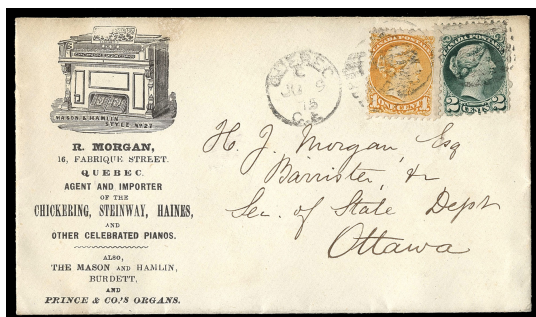 MASON & HAMLIN
STYLE No 27
R. MORGAN,
16, FABRIQUE STREET.
QUEBEC.
AGENT AND IMPORTER
OF THE
CHICKERING, STEINWAY, HAINES,
AND
OTHER CELEBRATED PIANOS.
ALSO,
THE MASON AND HAMLIN,
BURDETT,
AND
PRINCE & CO.'S ORGANS.
QUEBEC
C.E.
ONE CENT
CANADA POSTAGE
2 CENTS 2
H. J. Morgan, Esq
Barrister, &
Sec. of State Dept
Ottawa